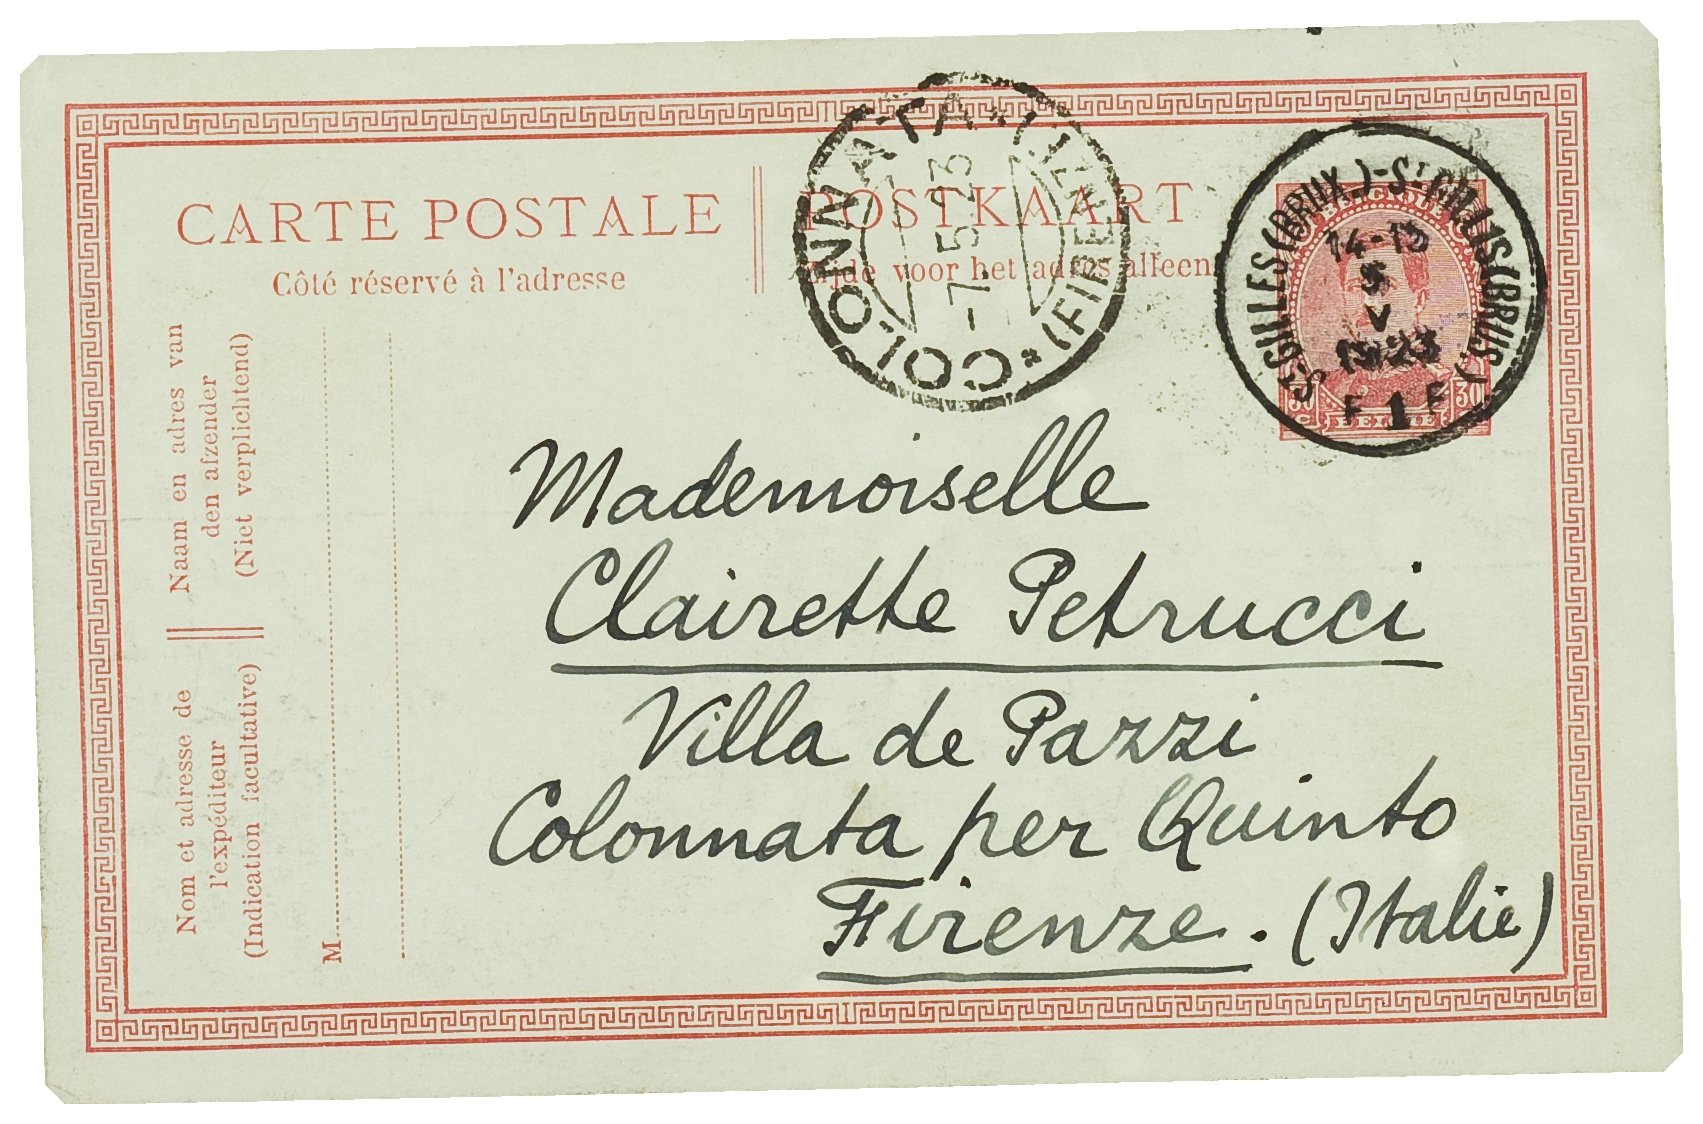 CARTE POSTALE
Côté réservé à l'adresse
POSTKAART
Zijde voor het adres alleen
COLONNATA * (FIRENZE) *
-7. 5. 23
ST-GILLES (BRUX.)-ST-GILLIS (BRUS.)
14-15
5
V
1923
F 1 F
30 30
BELGIË
Naam en adres van
den afzender
(Niet verplichtend)
Nom et adresse de
l'expéditeur
(Indication facultative)
M
Mademoiselle
Clairette Petrucci
Villa de Pazzi
Colonnata per Quinto
Firenze. (Italie)